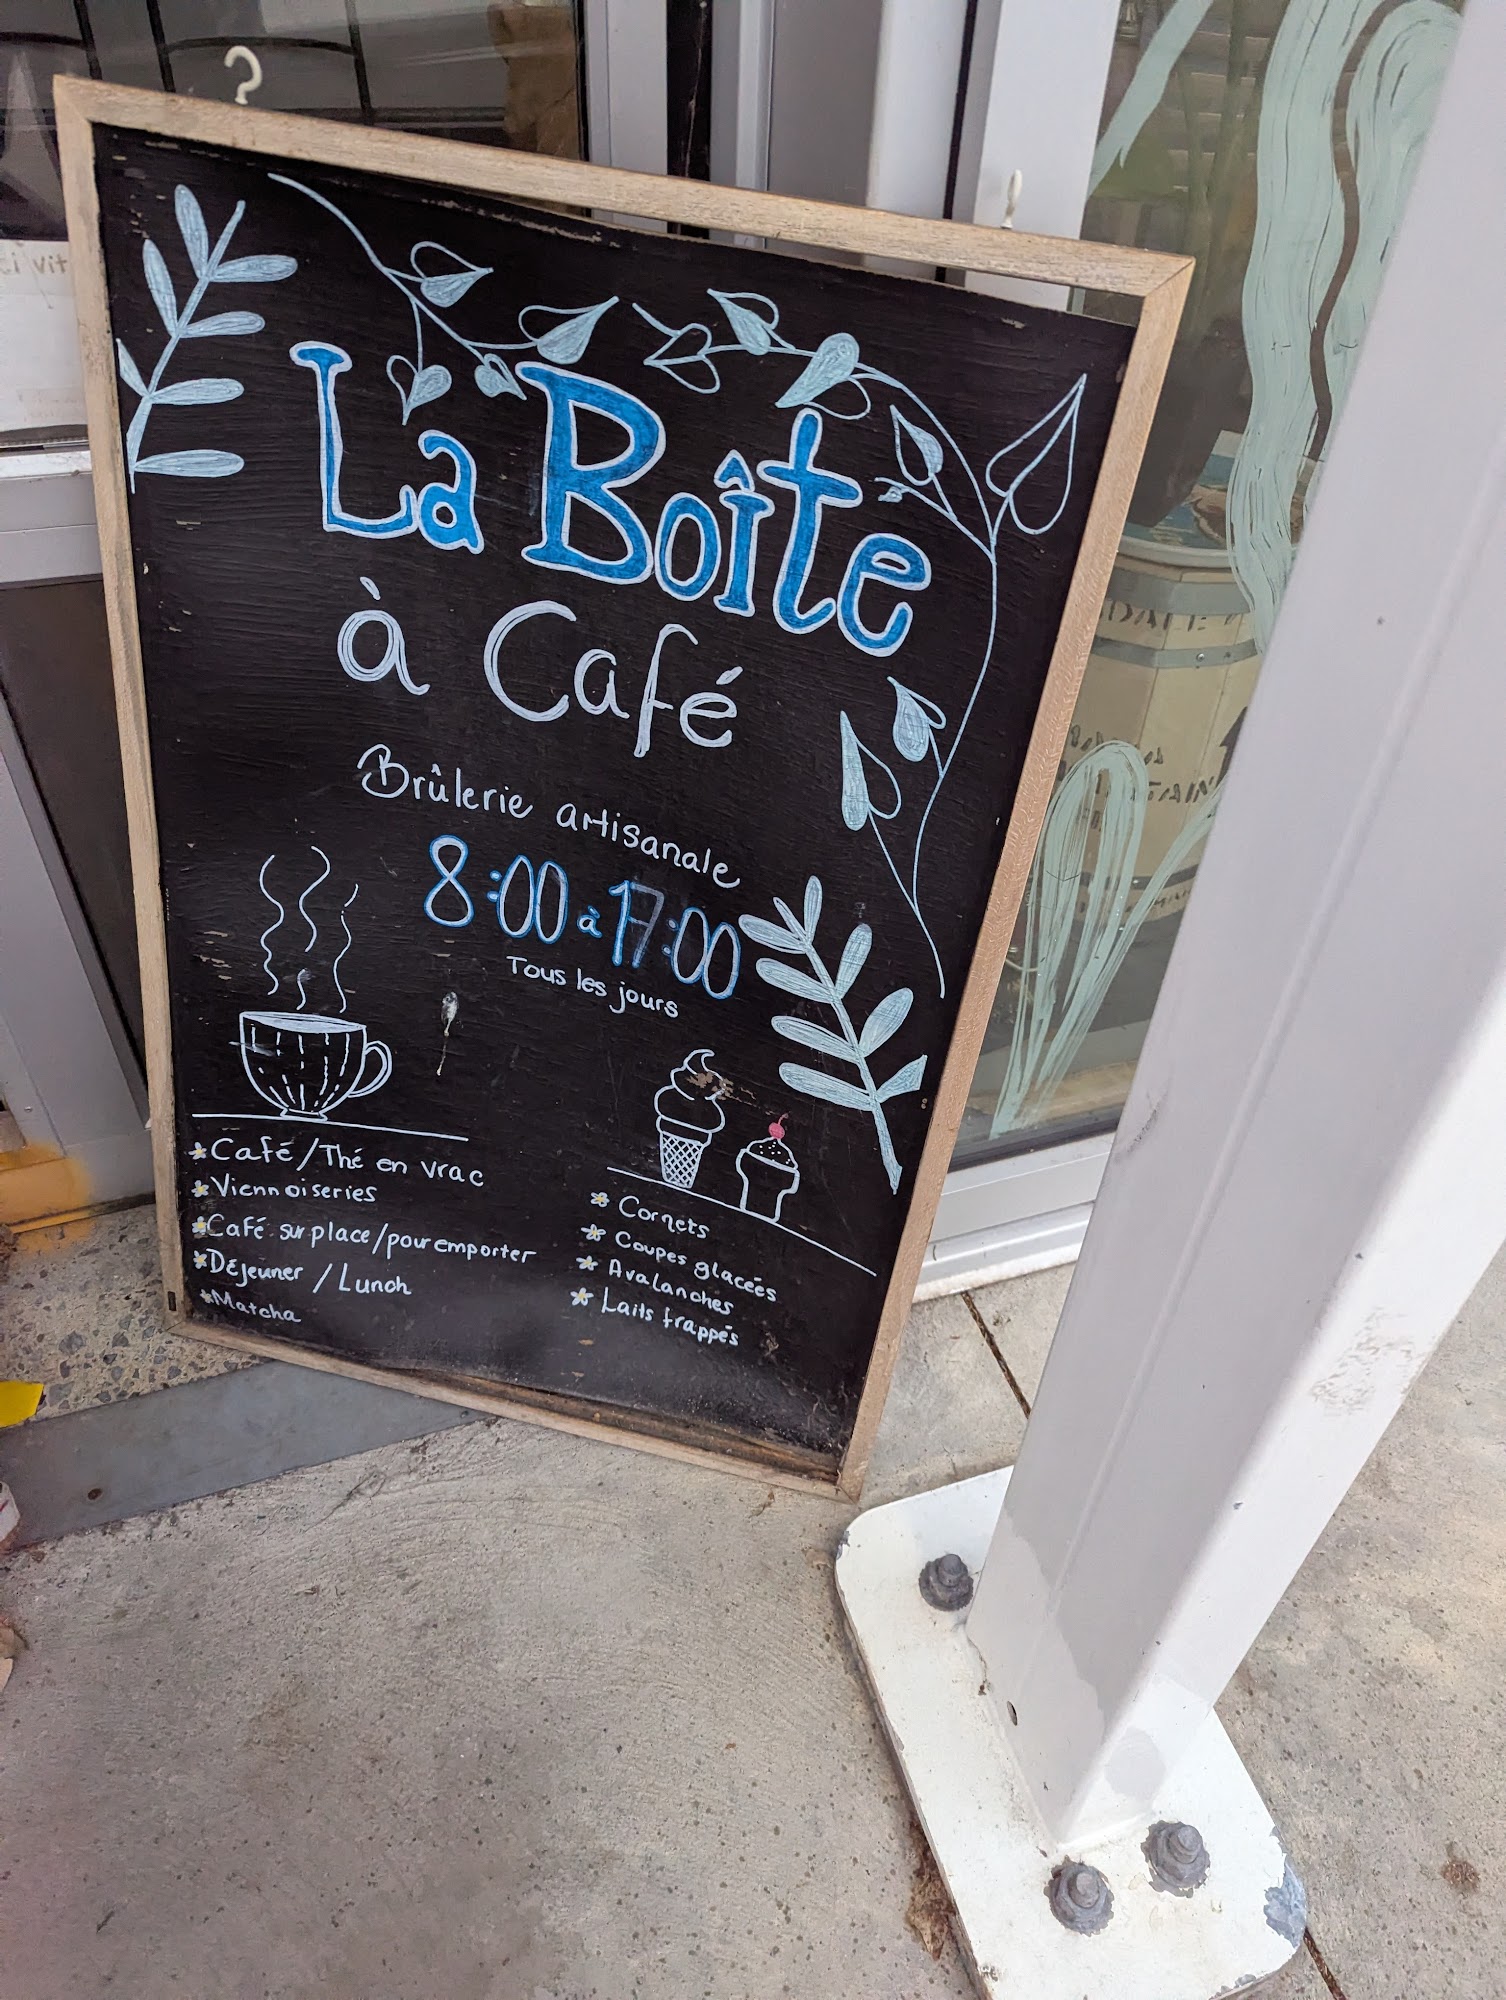 La Boîte
à Café
Brûlerie artisanale
8:00 à 17:00
Tous les jours
Café/Thé en vrac
Viennoiseries
Café sur place/pour emporter
Déjeuner / Lunch
Matcha
Cornets
Coupes glacées
Avalanches
Laits frappés